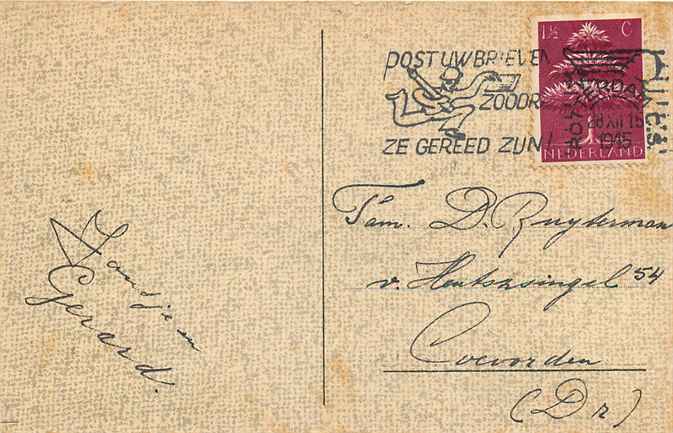 1½ C
POST UW BRIEVEN
ZOODRA
ZE GEREED ZIJN!
28 XII 15
1945
NEDERLAND
Fam. D. Ruyterman
54
Coevorden
(Dr)
Jansje en
Gerard.